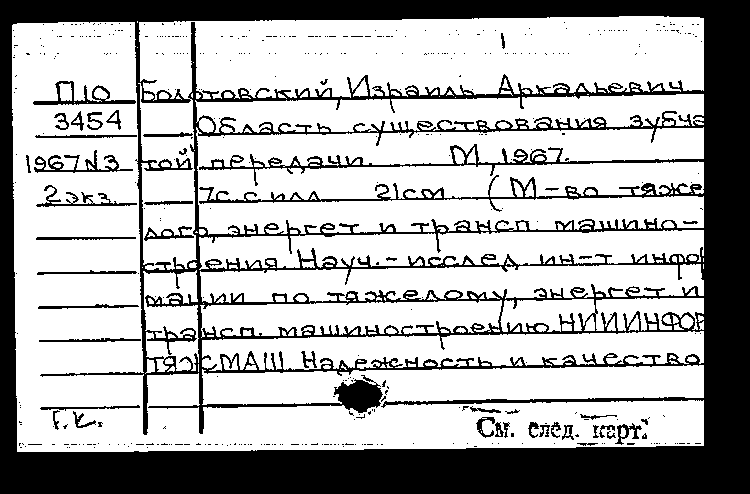 П10 Болотовский, Израиль Аркадьевич
3454 Область существования зубча
1967 N3 той передачи. М., 1967.
2 экз. 7с. с илл. 21см (М-во тяже
лого, энергет и трансп. машино-
строения. Науч.-исслед. ин-т инфор
мации по тяжелому, энергет и
трансп. машиностроению НИИИНФОР
ТЯЖМАШ Надежность и качество
Г.К.
См. след. карт.